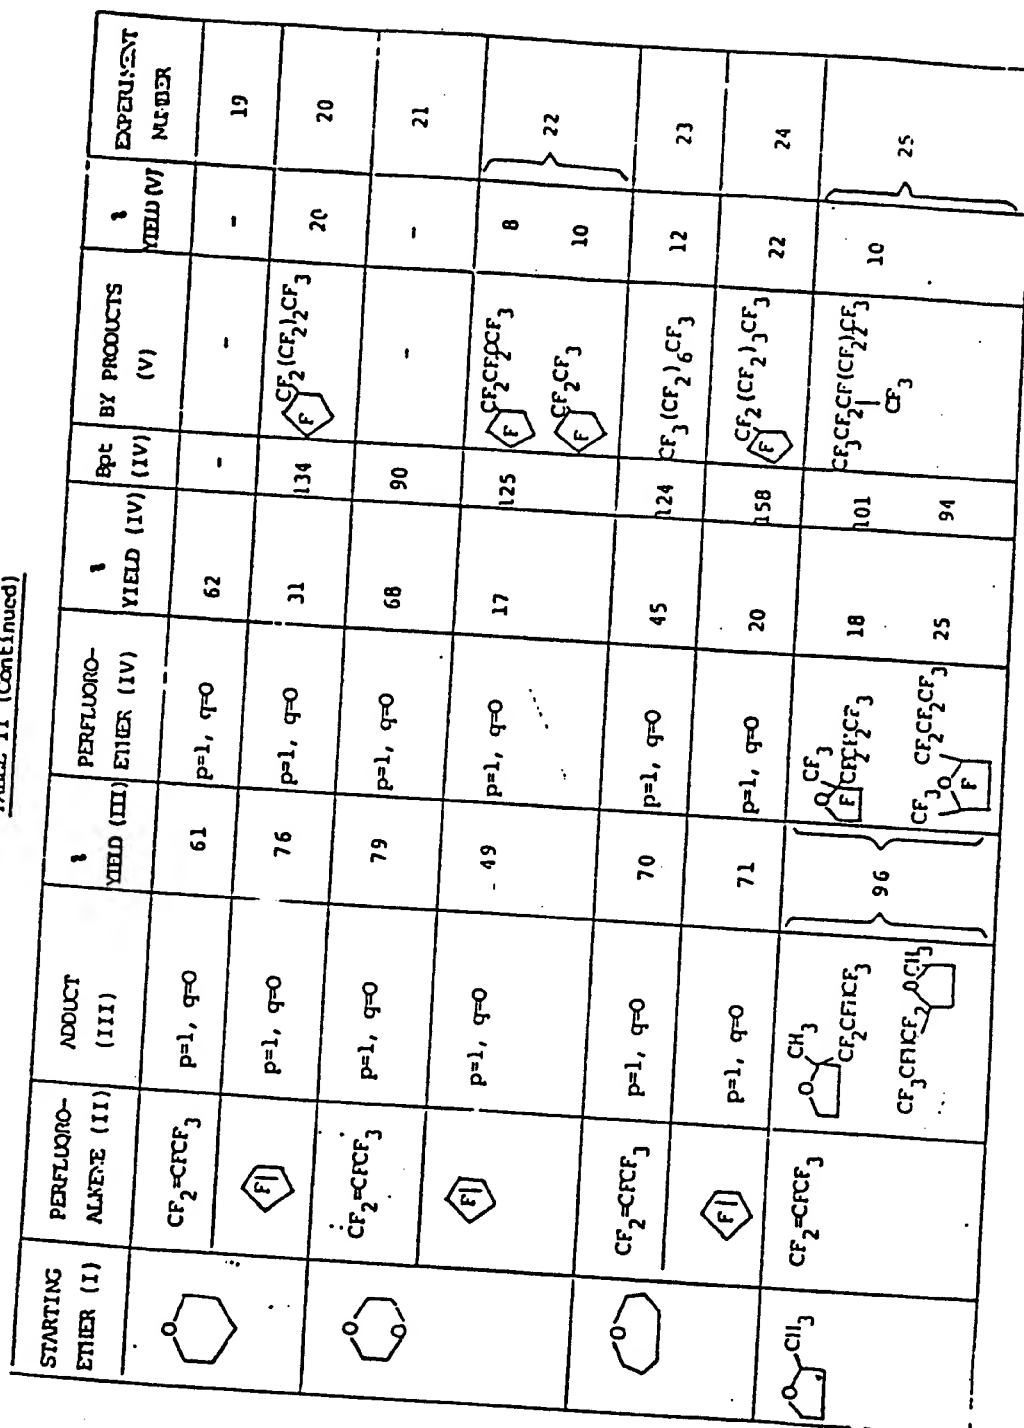 TABLE II (Continued)
STARTING ETHER (I) | PERFLUORO-ALKENE (II) | ADDUCT (III) | % YIELD (III) | PERFLUORO-ETHER (IV) | % YIELD (IV) | Bpt (IV) | BY PRODUCTS (V) | % YIELD (V) | EXPERIMENT NUMBER
O | CF2=CFCF3 | p=1, q=O | 61 | p=1, q=O | 62 | - | - | - | 19
F | p=1, q=O | 76 | p=1, q=O | 31 | 134 | F CF2(CF2)2CF3 | 20 | 20
O O | CF2=CFCF3 | p=1, q=O | 79 | p=1, q=O | 68 | 90 | - | - | 21
F | p=1, q=O | 49 | p=1, q=O | 17 | 125 | F CF2CF2OCF3 | 8 | 22
F CF2CF3 | 10
O | CF2=CFCF3 | p=1, q=O | 70 | p=1, q=O | 45 | 124 | CF3(CF2)6CF3 | 12 | 23
F | p=1, q=O | 71 | p=1, q=O | 20 | 158 | F CF2(CF2)3CF3 | 22 | 24
O CH3 | CF2=CFCF3 | O CH3 CF2CFHCF3 | 96 | O CF3 F CF2CF2CF3 | 18 | 101 | CF3CF2CF(CF2)2CF3 CF3 | 10 | 25
CF3CFHCF2 O CH3 | CF3 O CF2CF2CF3 F | 25 | 94